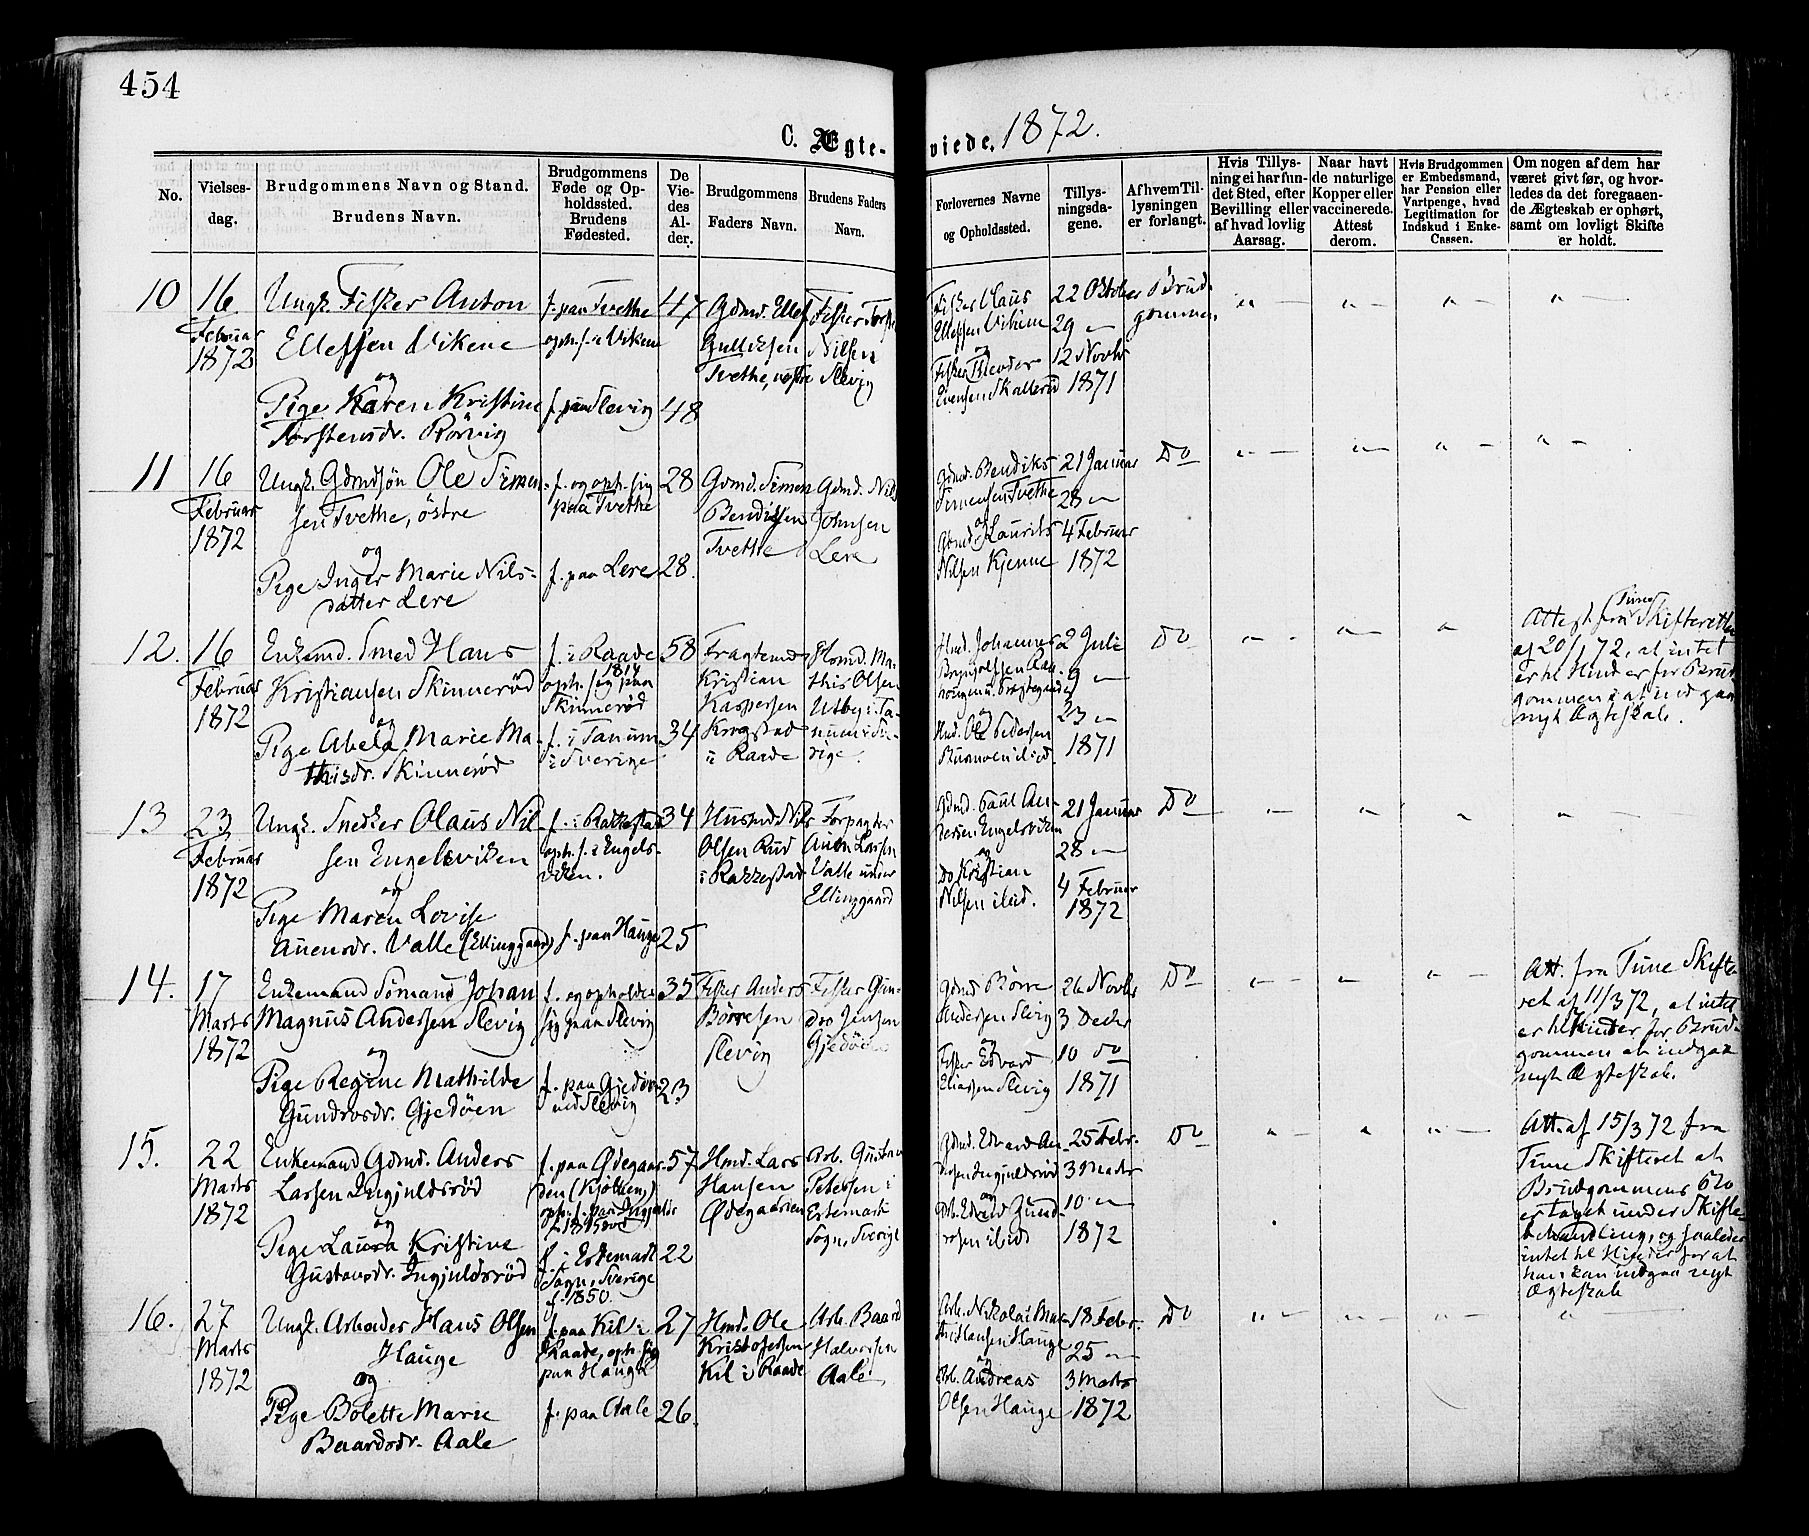 454
C. Ægte-
viede, 1872.
No.
Vielses-
dag.
Brudgommens Navn og Stand.
Brudens Navn.
Brudgommens
Føde og Op-
holdssted.
Brudens
Fødested.
De
Vie-
des
Al-
der.
Brudgommens
Faders Navn.
Brudens Faders
Navn.
Forlovernes Navne
og Opholdssted.
Tillys-
ningsda-
gene.
Af hvem Til-
lysningen
er forlangt.
Hvis Tillys-
ning ei har fun-
det Sted, efter
Bevilling eller
af hvad lovlig
Aarsag.
Naar havt
de naturlige
Kopper eller
vaccinerede.
Attest
derom.
Hvis Brudgommen
er Embedsmand,
har Pension eller
Vartpenge, hvad
Legitimation for
Indskud i Enke-
Cassen.
Om nogen af dem har
været givt før, og hvor-
ledes da det foregaaen-
de Ægteskab er ophørt,
samt om lovligt Skifte
er holdt.
10
16
Februar
1872
Ungk. Fisker Anton
Ellefsen Vikene
og
Pige Karen Kristine
Torstensdr. Rörvig
f. paa Tvethe
oph. s. i Vikene
f. paa Slevig
47
48
Gdmd. Ellef
Gulliksen
Tvethe, vestre
Fisker Torst
Nilsen
Slevig
Fisker Claus
Ellefsen Vikene
og
Fisker Theodor
Evensen Skallerød
22 Oktober
29 "
12 Novbr
1871
Brud-
gommen
11
16
Februar
1872
Ungk. Gdmdsøn Ole Simen-
sen Tvethe, östre
og
Pige Inger Marie Nils-
datter Lere
f. og oph. sig
paa Tvethe
f. paa Lere
28
28.
Gdmd. Simen
Bendixsen
Tvethe
Gdmd. Nils
Johnsen
Lere
Gdmd. Bendiks
Simensen Tvethe
og
Gdmd. Laurits
Nilsen Kjenne
21 Januar
28 "
4 Februar
1872
Do
12.
16
Februar
1872
Enkemd. Smed Hans
Kristiansen Skinnerød
og
Pige Abela Marie Ma-
thisdr. Skinnerød
f. i Raade
1814
oph. sig paa
Skinnerød
f. i Tanum
i Sverige
58
34
Fragtemd
Kristian
Kaspersen
Krogstad
i Raade
Hsmd. Ma-
this Olsen
Utby i Ta-
num i Sve-
rige.
Hmd. Johannes
og
Hmd. Ole Pedersen
2 Juli
9 "
23 "
1871
Do
Attest fra Tune Skifteretten
af 20/1 72, at intet
er til Hinder for Brud-
gommen i at indgaa
nyt Ægteskab.
13
23
Februar
1872
Ungk. Snedker Olaus Nil-
sen Engelsviken
og
Pige Maren Lovise
Auensdr. Valle (Ellinggaard)
f. i Rakkestad
oph. s. i Engels-
viken.
f. paa Hauge
34
25
Husmd Nils
Olsen Rud
i Rakkestad
Forpagter
Auen Larsen
Valle under
Ellinggaard
Gdmd. Paul An-
dersen Engelsviken
og
Do Kristian
Nilsen ibid.
21 Januar
28 "
4 Februar
1872
Do
14.
17
Marts
1872
Enkemand Sömand Johan
Magnus Andersen Slevig
og
Pige Regine Mathilde
Gundrosdr. Gjedöen
f. og opholder
sig paa Slevig
f. paa Gjedöen
ved Slevig
35
23
Fisker Anders
Börresen
Slevig
Fisker Gun-
dro Jensen
Gjedöen
Gdmd Börre
Andersen Slevig
og
Fisker Edvard
Eliassen Slevig
26 Novbr
3 Decbr
10 do
1871
Do
Att. fra Tune Skifte-
ret af 11/3 72, at intet
er til Hinder for Brud-
gommen at indgaa
nyt Ægteskab.
15.
22
Marts
1872
Enkemand Gdmd. Anders
Larsen Ingjuldsröd
og
Pige Laura Kristine
Gustavsdr. Ingjuldsröd
f. paa Ødegaar-
den (Kjölberg)
oph. s. paa Ingjulds-
röd
f. i Estemark
Sogn, Sverige
f. 1850.
57
22
Hmd. Lars
Hansen
Ødegaarden
Arb. Gustav
Petersen i
Estemark
Sogn, Sverige
Gdmd. Edvard An-
dersen Ingjuldsröd
og
Arb. Edvard Gund-
rosen ibid
25 Febr.
3 Marts
10 "
1872
Do
Att. af 15/3 72 fra
Tune Skifteret at
Brudgommens Bo
er taget under Skifte-
behandling, og saaledes
intet til Hinder for at
han kan indgaa nyt
Ægteskab
16.
27
Marts
1872
Ungk. Arbeider Hans Olsen
Hauge
og
Pige Bolette Marie
Baardsdr. Aale
f. paa Kil i
Raade, oph. sig
paa Hauge
f. paa Aale
27
26.
Hmd. Ole
Kristofersen
Kil i Raade
Arb. Baard
Halvorsen
Aale
Arb. Nikolai Mar-
thinsen Hauge
og
Arb. Andreas
Olsen Hauge
18 Febr.
25 "
3 Marts
1872
Do